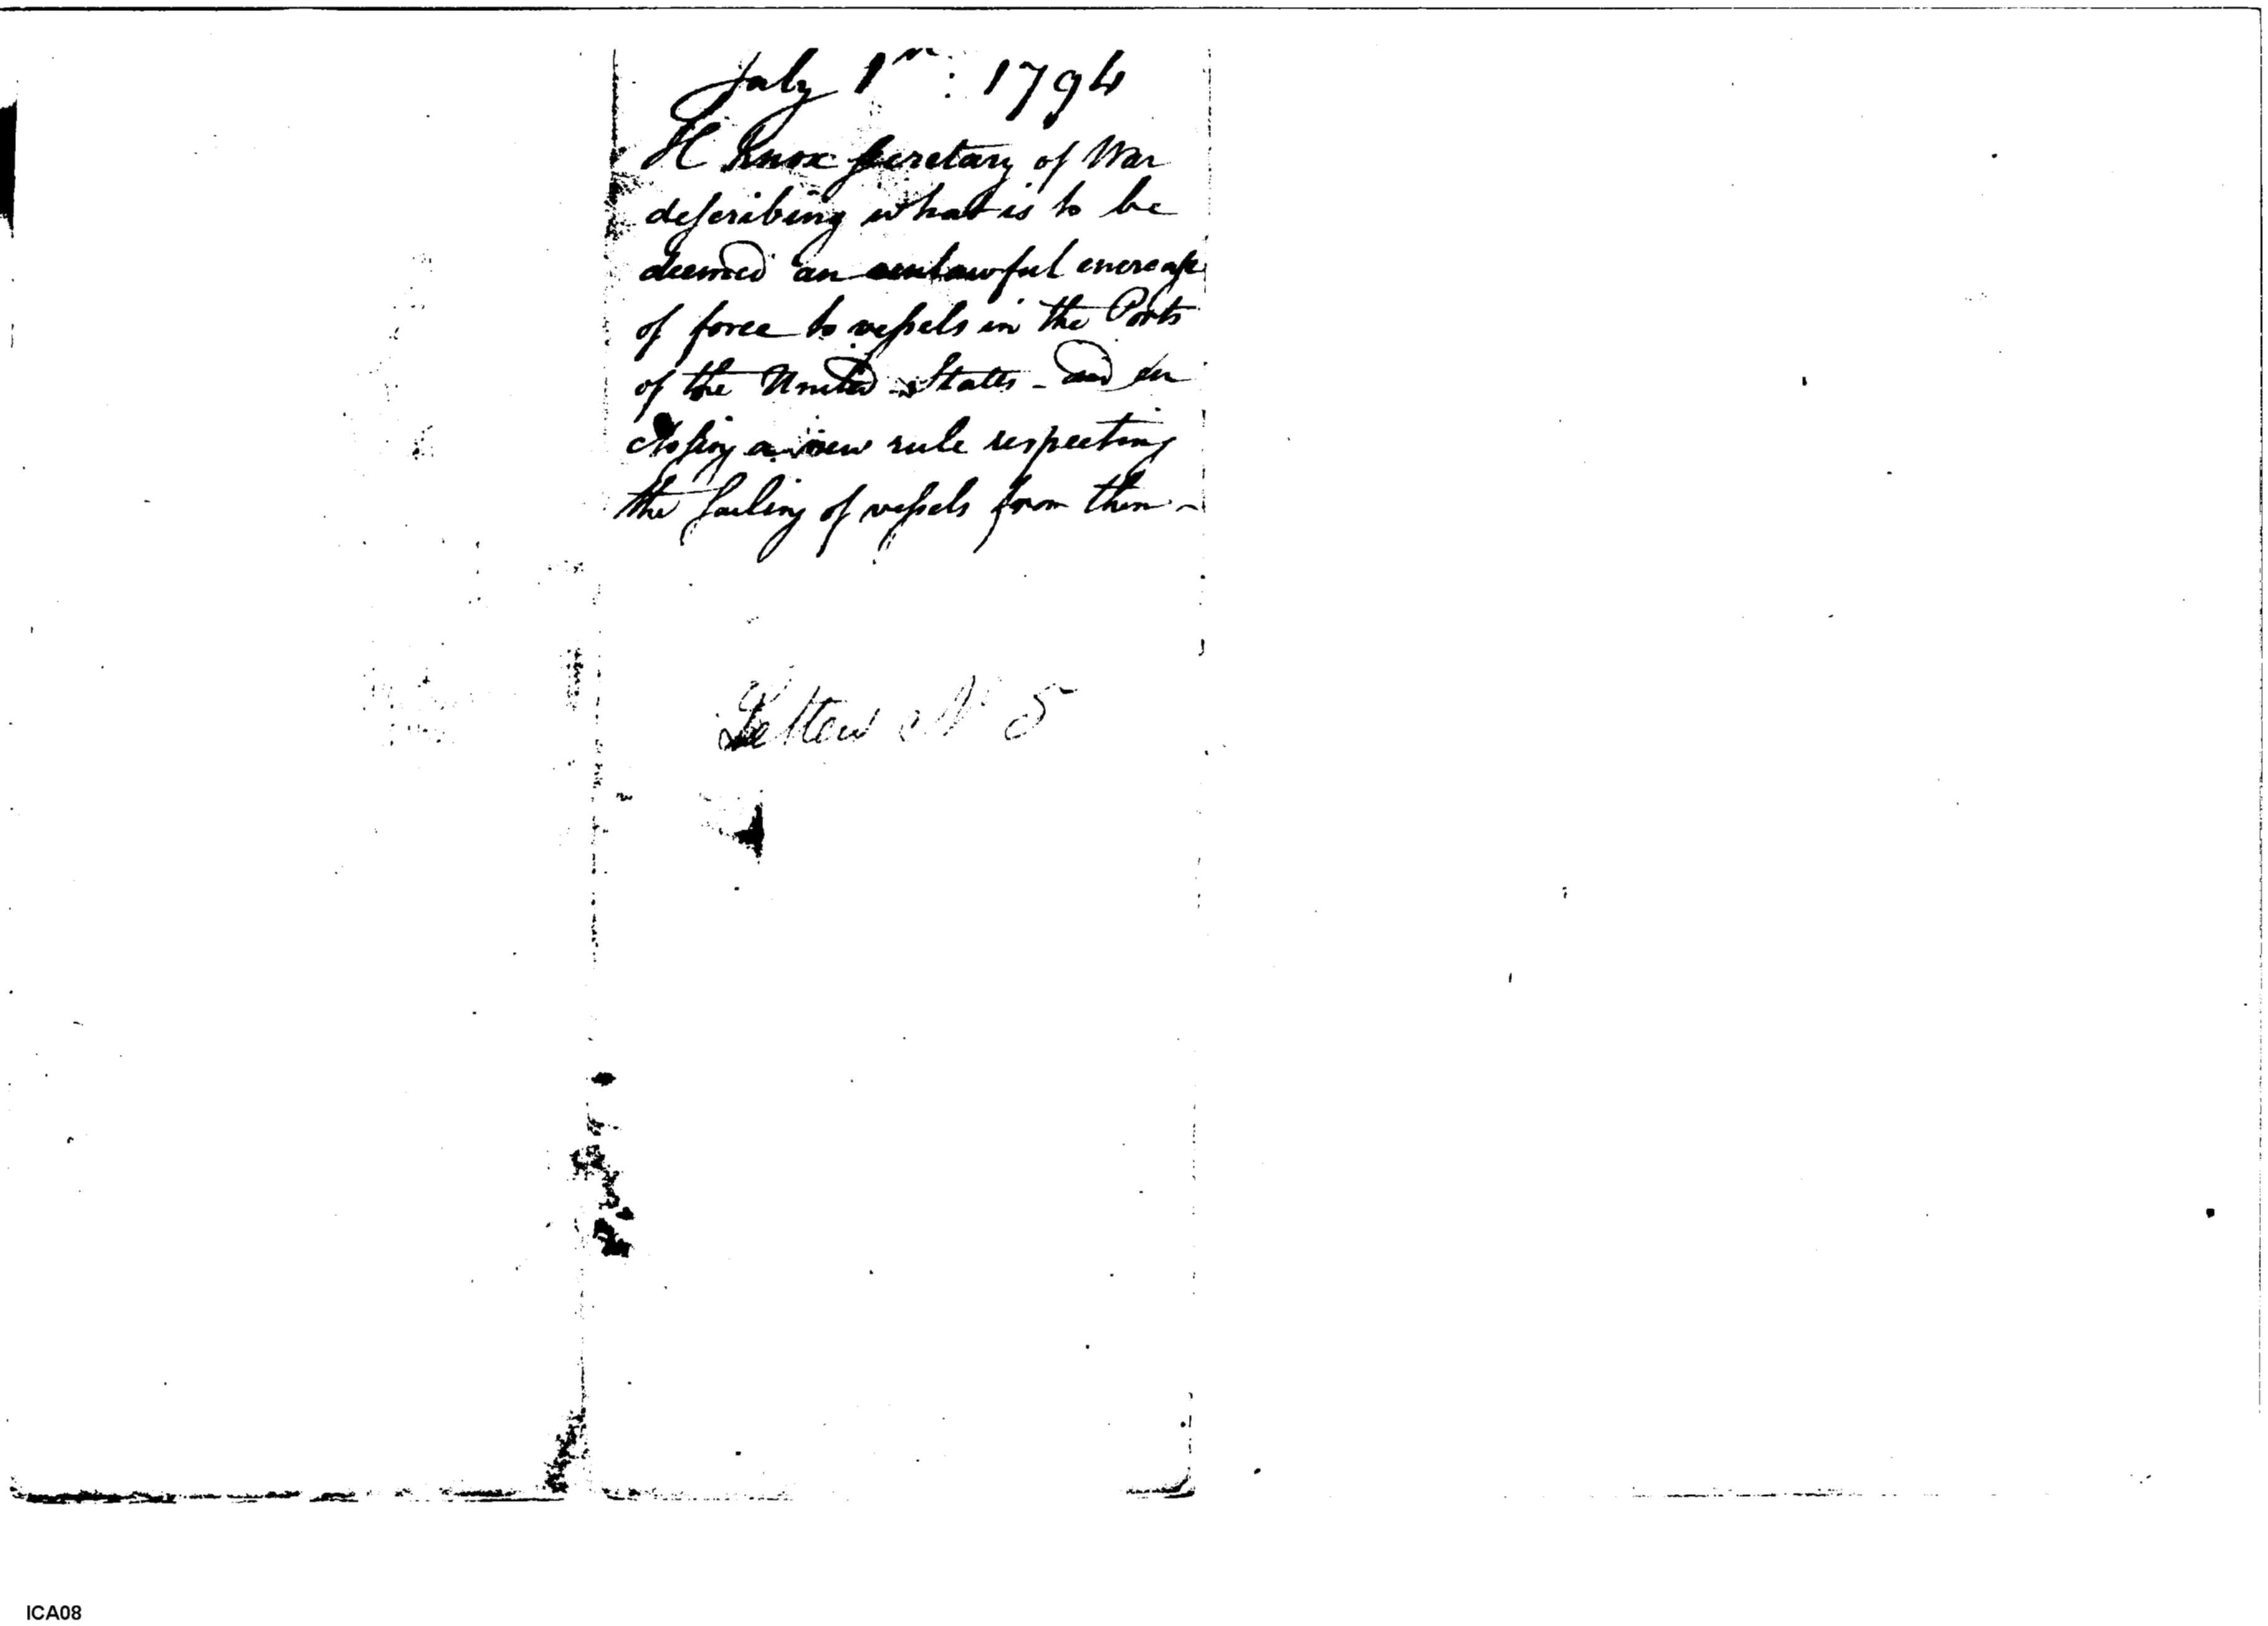 July 1st: 1794
H Knox Secretary of War
describing what is to be
deemed an unlawful encrease
of force to vessels in the Ports
of the United States - and en
closing a new rule respecting
the sailing of vessels from them -
Letter N 5
ICA08